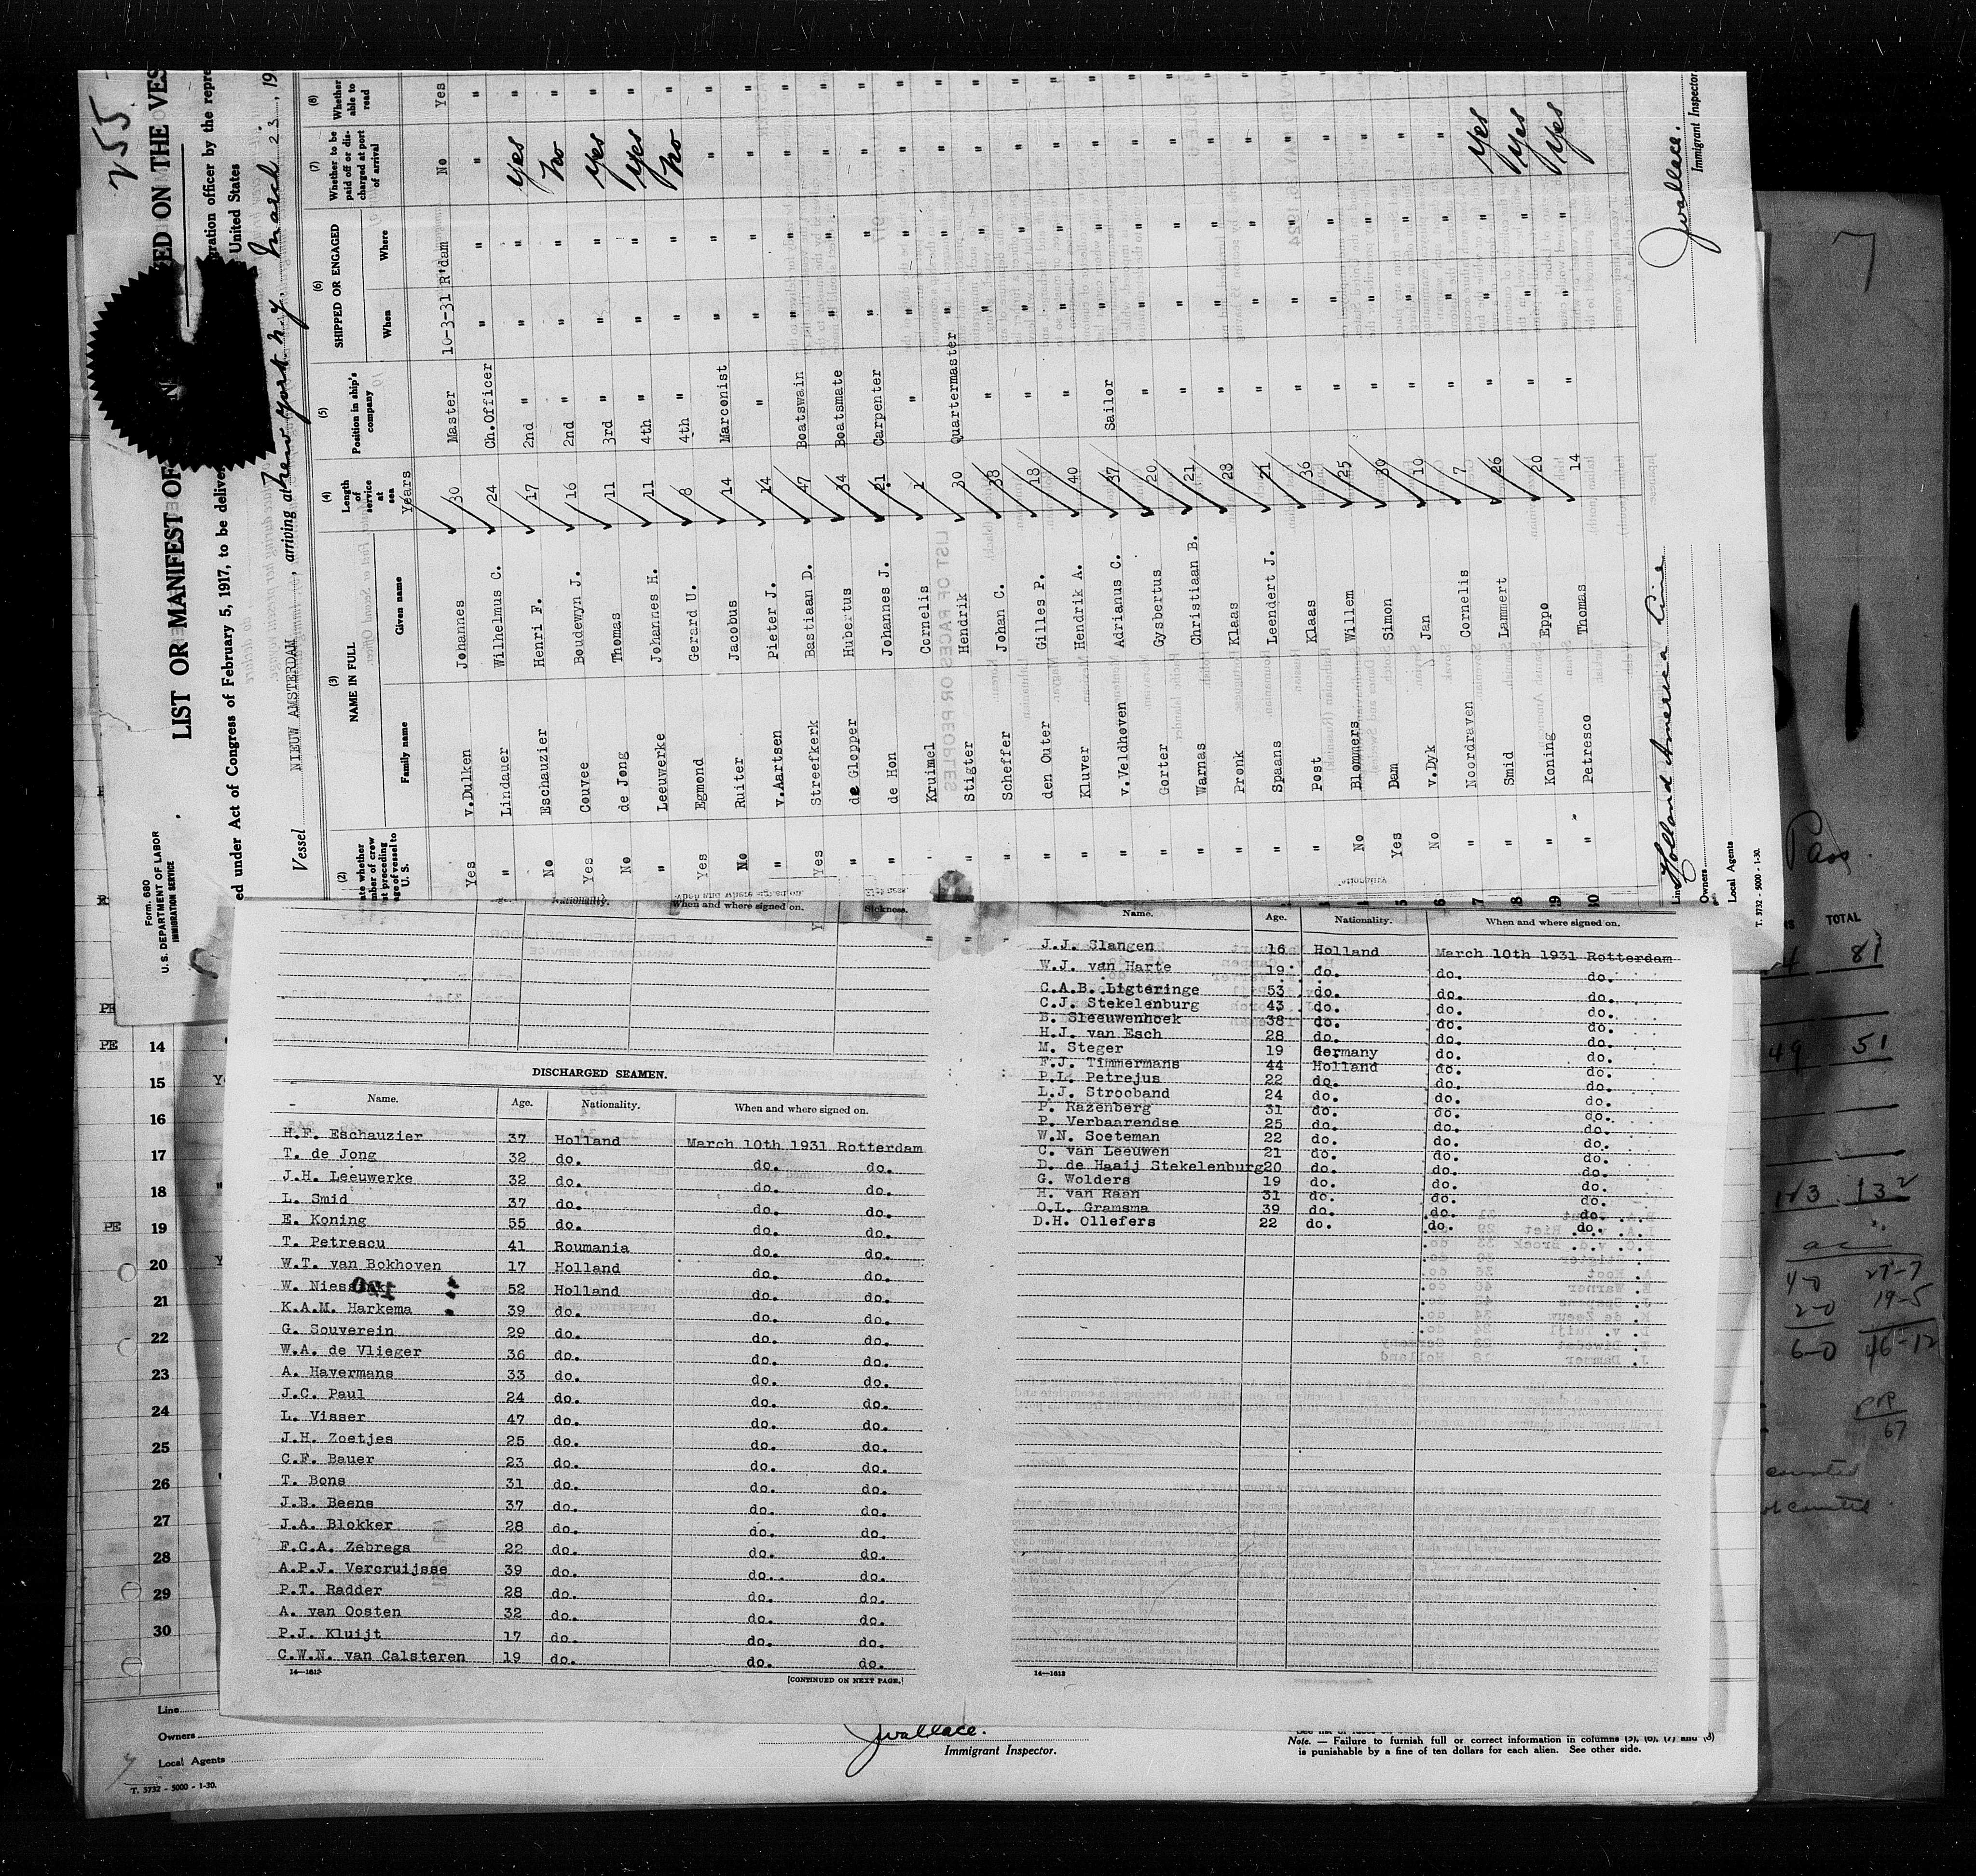 255
Form. 680
U. S. DEPARTMENT OF LABOR
IMMIGRATION SERVICE
LIST OR MANIFEST OF
ED ON THE VES
ed under Act of Congress of February 5, 1917, to be deliver
gration officer by the repre
United States
Vessel NIEUW AMSTERDAM, arriving at New York N.Y. March 23, 19
(2) (3) (4) (5) (6) (7) (8)
NAME IN FULL
Family name Given name
Length of service at sea
Position in ship's company
SHIPPED OR ENGAGED
When Where
Whether to be paid off or discharged at port of arrival
Whether able to read
Years
Yes v.Dulken Johannes 30 Master 10-3-31 R'dam No Yes
" Lindauer Wilhelmus C. 24 Ch.Officer " " " "
No Eschauzier Henri F. 17 2nd " " " yes "
Yes Couvee Boudewyn J. 16 2nd " " " no "
No de Jong Thomas 11 3rd " " " yes "
" Leeuwerke Johannes H. 11 4th " " " yes "
Yes Egmond Gerard U. 8 4th " " " no "
No Ruiter Jacobus 14 Marconist " " " "
" v.Aartsen Pieter J. 14 " " " " "
Yes Streefkerk Bastiaan D. 47 Boatswain " " " "
" de Glopper Hubertus 34 Boatsmate " " " "
" de Hon Johannes J. 21 Carpenter " " " "
" Kruimel Cornelis 1 " " " " "
" Stigter Hendrik 30 Quartermaster " " " "
" Scheffer Johan C. 38 " " " " "
" den Outer Gilles P. 18 " " " " "
" Kluver Hendrik A. 40 " " " " "
" v.Veldhoven Adrianus C. 37 Sailor " " " "
" Gorter Gysbertus 20 " " " " "
" Warnas Christiaan B. 21 " " " " "
" Pronk Klaas 28 " " " " "
" Spaans Leendert J. 21 " " " " "
" Post Klaas 36 " " " " "
No Blommers Willem 25 " " " " "
Yes Dam Simon 30 " " " " "
No v.Dyk Jan 10 " " " " "
" Noordraven Cornelis 7 " " " " "
" Smid Lammert 26 " " " yes "
" Koning Eppo 20 " " " yes "
" Petresco Thomas 14 " " " yes "
Line Holland America Line
Owners
Local Agents
T. 3732 - 5000 - 1-30.
JWallace.
Immigrant Inspector
Nationality. When and where signed on. Sickness.
DISCHARGED SEAMEN.
Name. Age. Nationality. When and where signed on.
H.F. Eschauzier 37 Holland March 10th 1931 Rotterdam
T. de Jong 32 do. do. do.
J.H. Leeuwerke 32 do. do. do.
L. Smid 37 do. do. do.
E. Koning 55 do. do. do.
T. Petrescu 41 Roumania do. do.
W.T. van Bokhoven 17 Holland do. do.
W. 52 Holland do. do.
K.A.M. Harkema 39 do. do. do.
G. Souverein 29 do. do. do.
W.A. de Vlieger 36 do. do. do.
A. Havermans 33 do. do. do.
J.C. Paul 24 do. do. do.
L. Visser 47 do. do. do.
J.H. Zoetjes 25 do. do. do.
C.F. Bauer 23 do. do. do.
T. Bons 31 do. do. do.
J.B. Beens 37 do. do. do.
J.A. Blokker 28 do. do. do.
F.C.A. Zebregs 22 do. do. do.
A.P.J. Vercruijsse 39 do. do. do.
P.T. Radder 28 do. do. do.
A. van Oosten 32 do. do. do.
P.J. Kluijt 17 do. do. do.
C.W.N. van Calsteren 19 do. do. do.
14—1613
[CONTINUED ON NEXT PAGE.]
Name. Age. Nationality. When and where signed on.
J.J. Slangen 16 Holland March 10th 1931 Rotterdam
W.J. van Harte 19 do. do. do.
C.A.B. Ligteringe 53 do. do. do.
C.J. Stekelenburg 43 do. do. do.
B. Sleeuwenhoek 38 do. do. do.
H.J. van Esch 28 do. do. do.
M. Steger 19 Germany do. do.
F.J. Timmermans 44 Holland do. do.
P.L. Petrejus 22 do. do. do.
L.J. Strooband 24 do. do. do.
P. Razenberg 31 do. do. do.
P. Verbaarendse 25 do. do. do.
W.N. Soeteman 22 do. do. do.
C. van Leeuwen 21 do. do. do.
D. de Haaij Stekelenburg 20 do. do. do.
G. Wolders 19 do. do. do.
H. van Raan 31 do. do. do.
O.L. Gramsma 39 do. do. do.
D.H. Ollefers 22 do. do. do.
14—1613
PE 14
15
16
17
18
PE 19
20
21
22
23
24
25
26
27
28
29
30
Line
Owners
Local Agents
T. 3732 - 5000 - 1-30.
JWallace.
Immigrant Inspector.
Note. — Failure to furnish full or correct information in columns (5), (6), (7) and (8)
is punishable by a fine of ten dollars for each alien. See other side.
Pass.
TOTAL
81
49 51
132
40 27-7
2-0 19-5
6-0 46-12
67